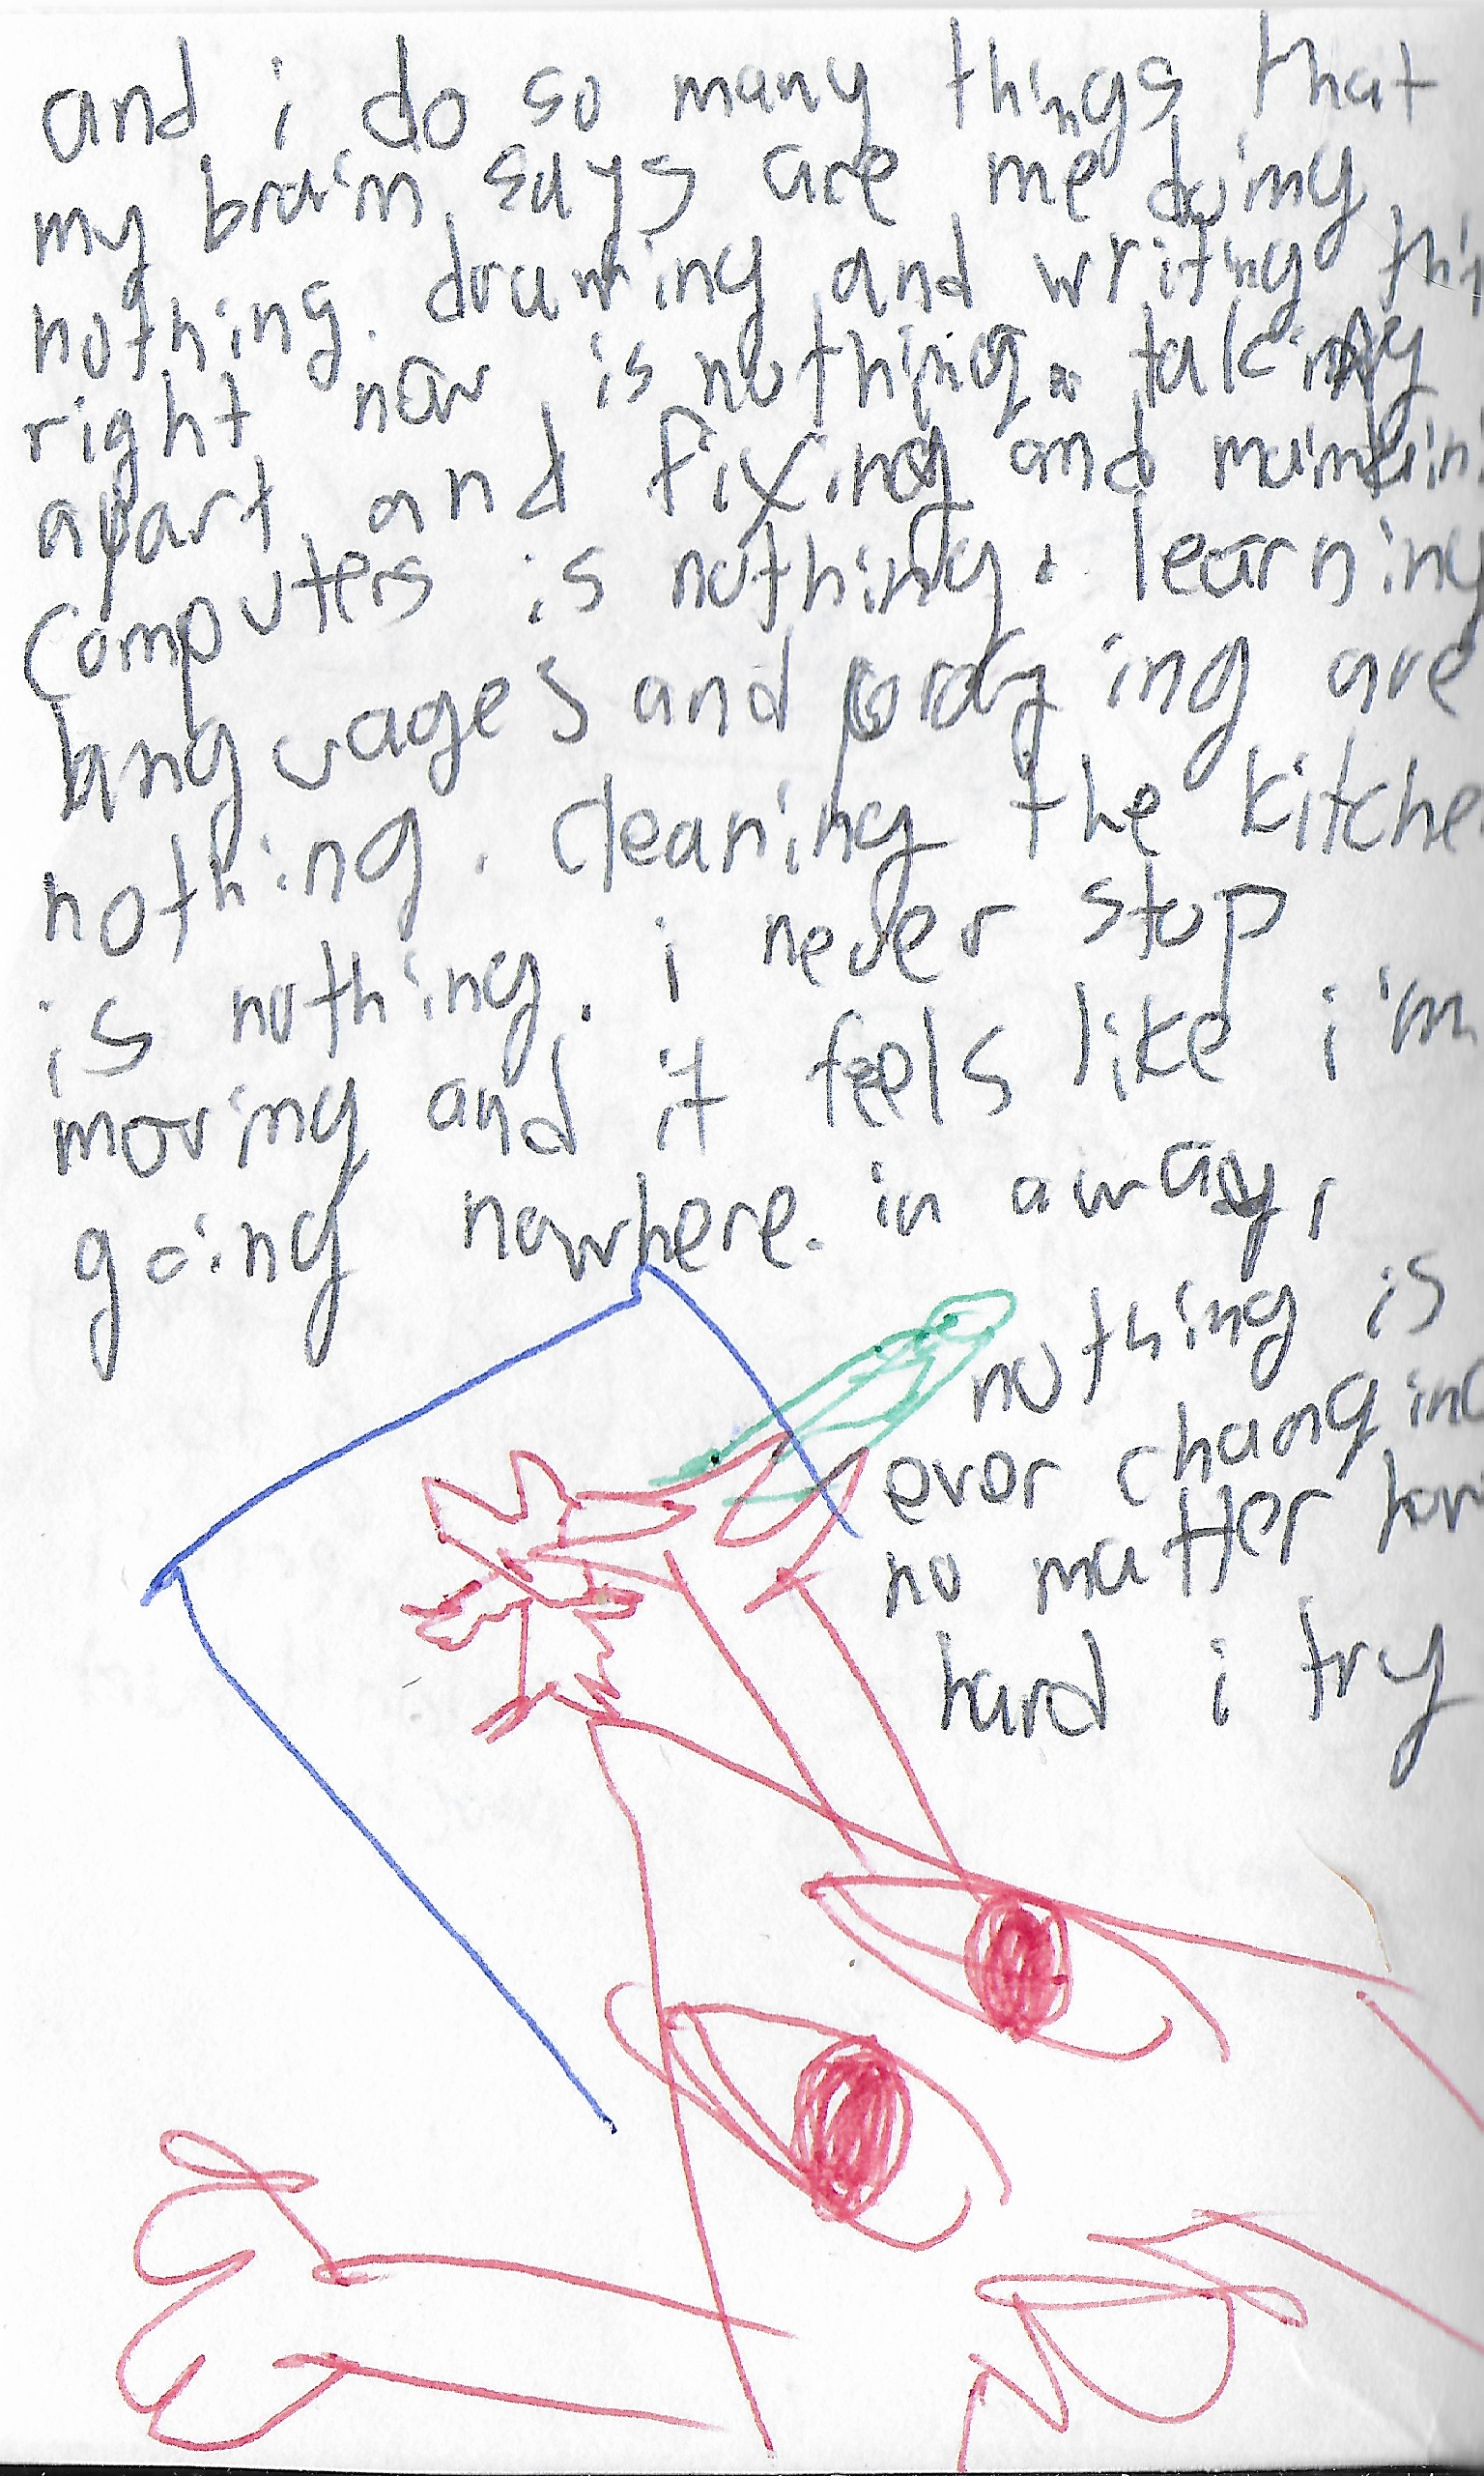 and i do so many things that
my brain says are me doing
nothing. drawing and writing thi
right now is nothing. taking
apart and fixing and maintaini
computers is nothing. learning
languages and praying are
nothing. cleaning the kitche
is nothing. i never stop
moving and it feels like i'm
going nowhere. in a way,
nothing is
ever changing
no matter how
hard i try